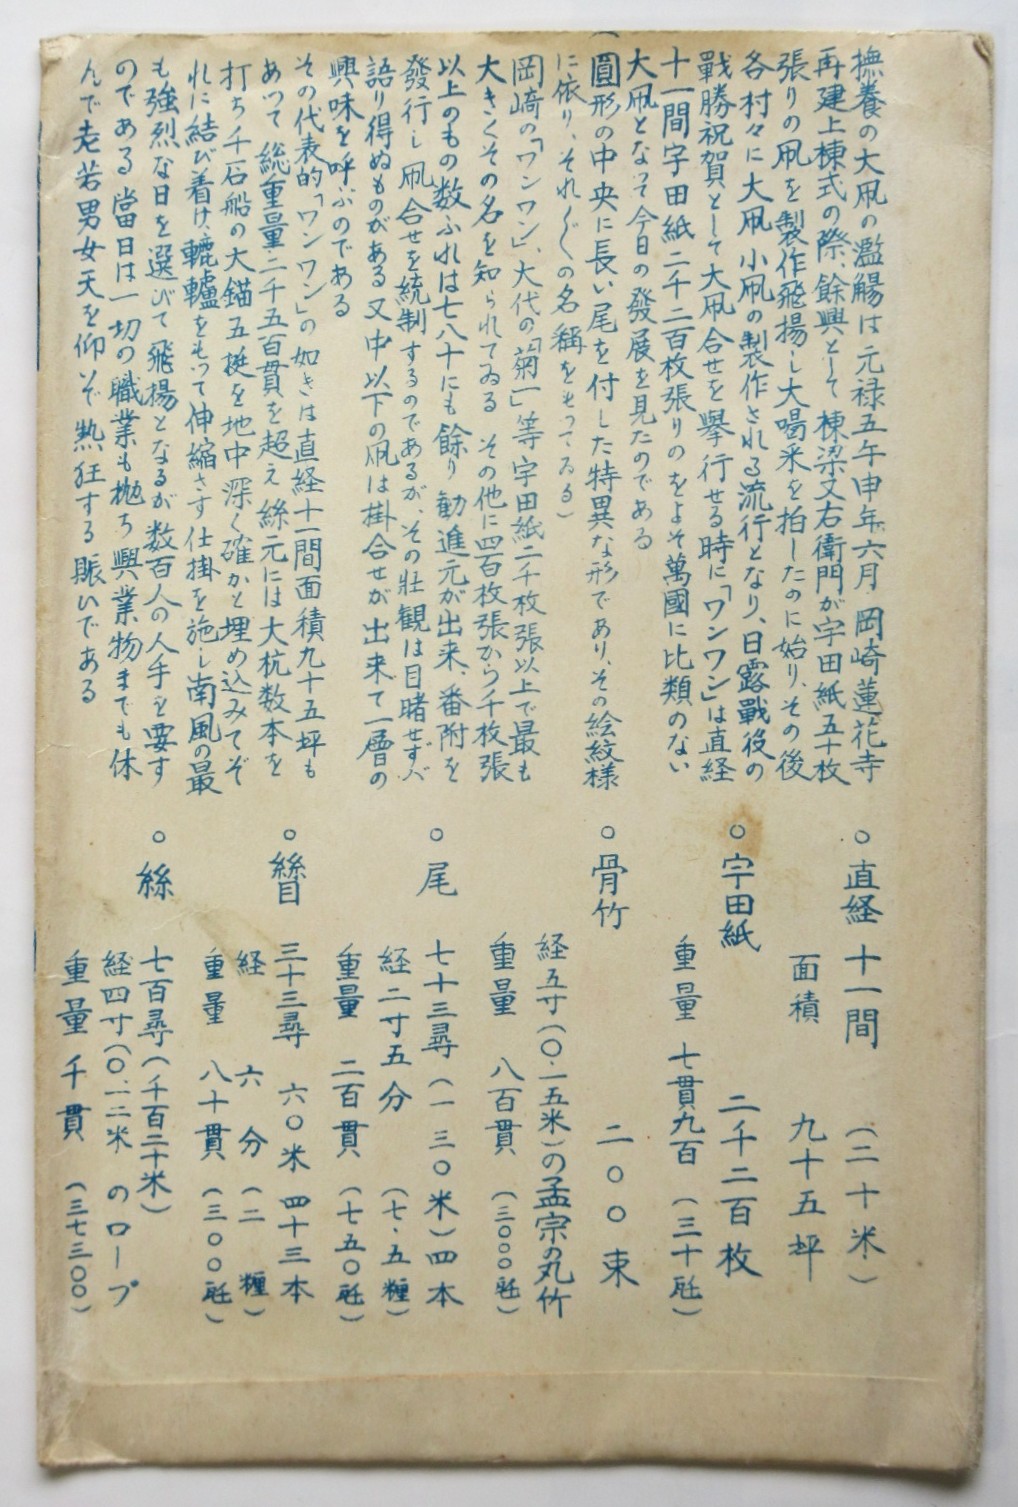 撫養の大凧の濫觴は元禄五年申年六月岡崎蓮花寺
再建上棟式の際、餘興として棟梁又右衛門が宇田紙五十枚
張りの凧を製作飛揚し大喝采を拍したのに始り、その後
各村々に大凧小凧の製作される流行となり、日露戰後の
戰勝祝賀として大凧合せを擧行せる時に「ワンワン」は直経
十一間宇田紙二千二百枚張りのをよそ萬國に比類のない
大凧となって今日の發展を見たのである
(圓形の中央に長い尾を付した特異な形であり、その絵紋様
に依り、それ〲の名稱をもってゐる)
岡崎の「ワンワン」、大代の「菊一」等宇田紙二千枚張以上で最も
大きくその名を知られてゐる その他に四百枚張から千枚張
以上のもの数ふれは七八十にも餘り勧進元が出来、番附を
發行し凧合せを統制するのであるが、その壯観は目睹せずば
語り得ぬものがある又中以下の凧は掛合せが出来て一層の
興味を呼ぶのである
その代表的「ワンワン」の如きは直経十一間面積九十五坪も
あって総重量二千五百貫を超え絲元には大杭数本を
打ち千石船の大錨五挺を地中深く確かと埋め込みてそ
れに結び着け、轆轤をもって伸縮さす仕掛を施し南風の最
も強烈な日を選びて飛揚となるが数百人の人手を要す
のである 當日は一切の職業も抛ち興業物までも休
んで老若男女天を仰いで熱狂する賑いである
○直経 十一間 (二十米)
面積 九十五坪
○宇田紙 二千二百枚
重量 七貫九百 (三十瓩)
○骨竹 二〇〇束
経五寸(〇・一五米)の孟宗の丸竹
重量 八百貫 (三〇〇〇瓩)
○尾 七十三尋(一三〇米)四本
経二寸五分 (七・五糎)
重量 二百貫 (七五〇瓩)
○絲目 三十三尋 六〇米 四十三本
経 六分 (二糎)
重量 八十貫 (三〇〇瓩)
○絲 七百尋(千百二十米)
経四寸(〇・一二米のロープ
重量千貫 (三七三〇〇)